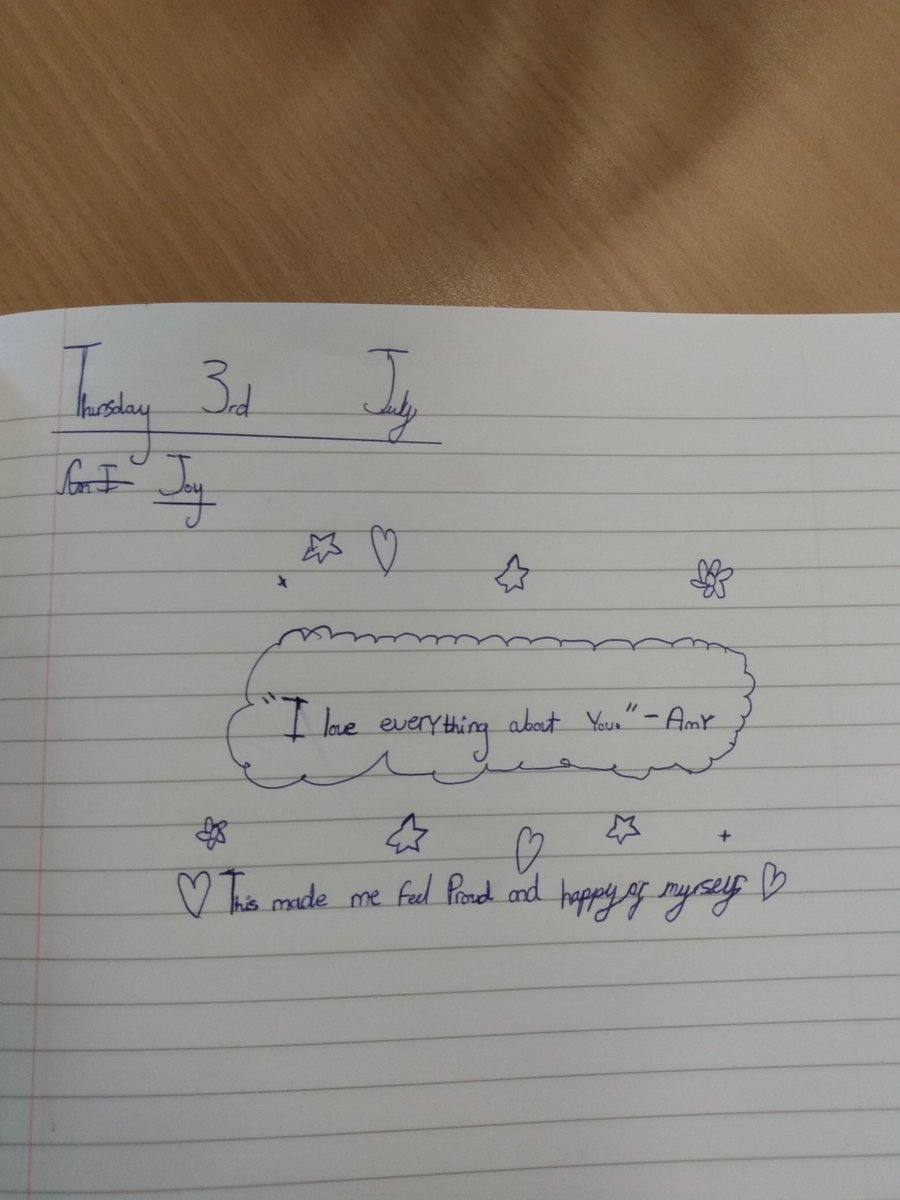 Thursday 3rd July
Can I Joy
"I love everything about You." - Amy
This made me feel Proud and happy of myself